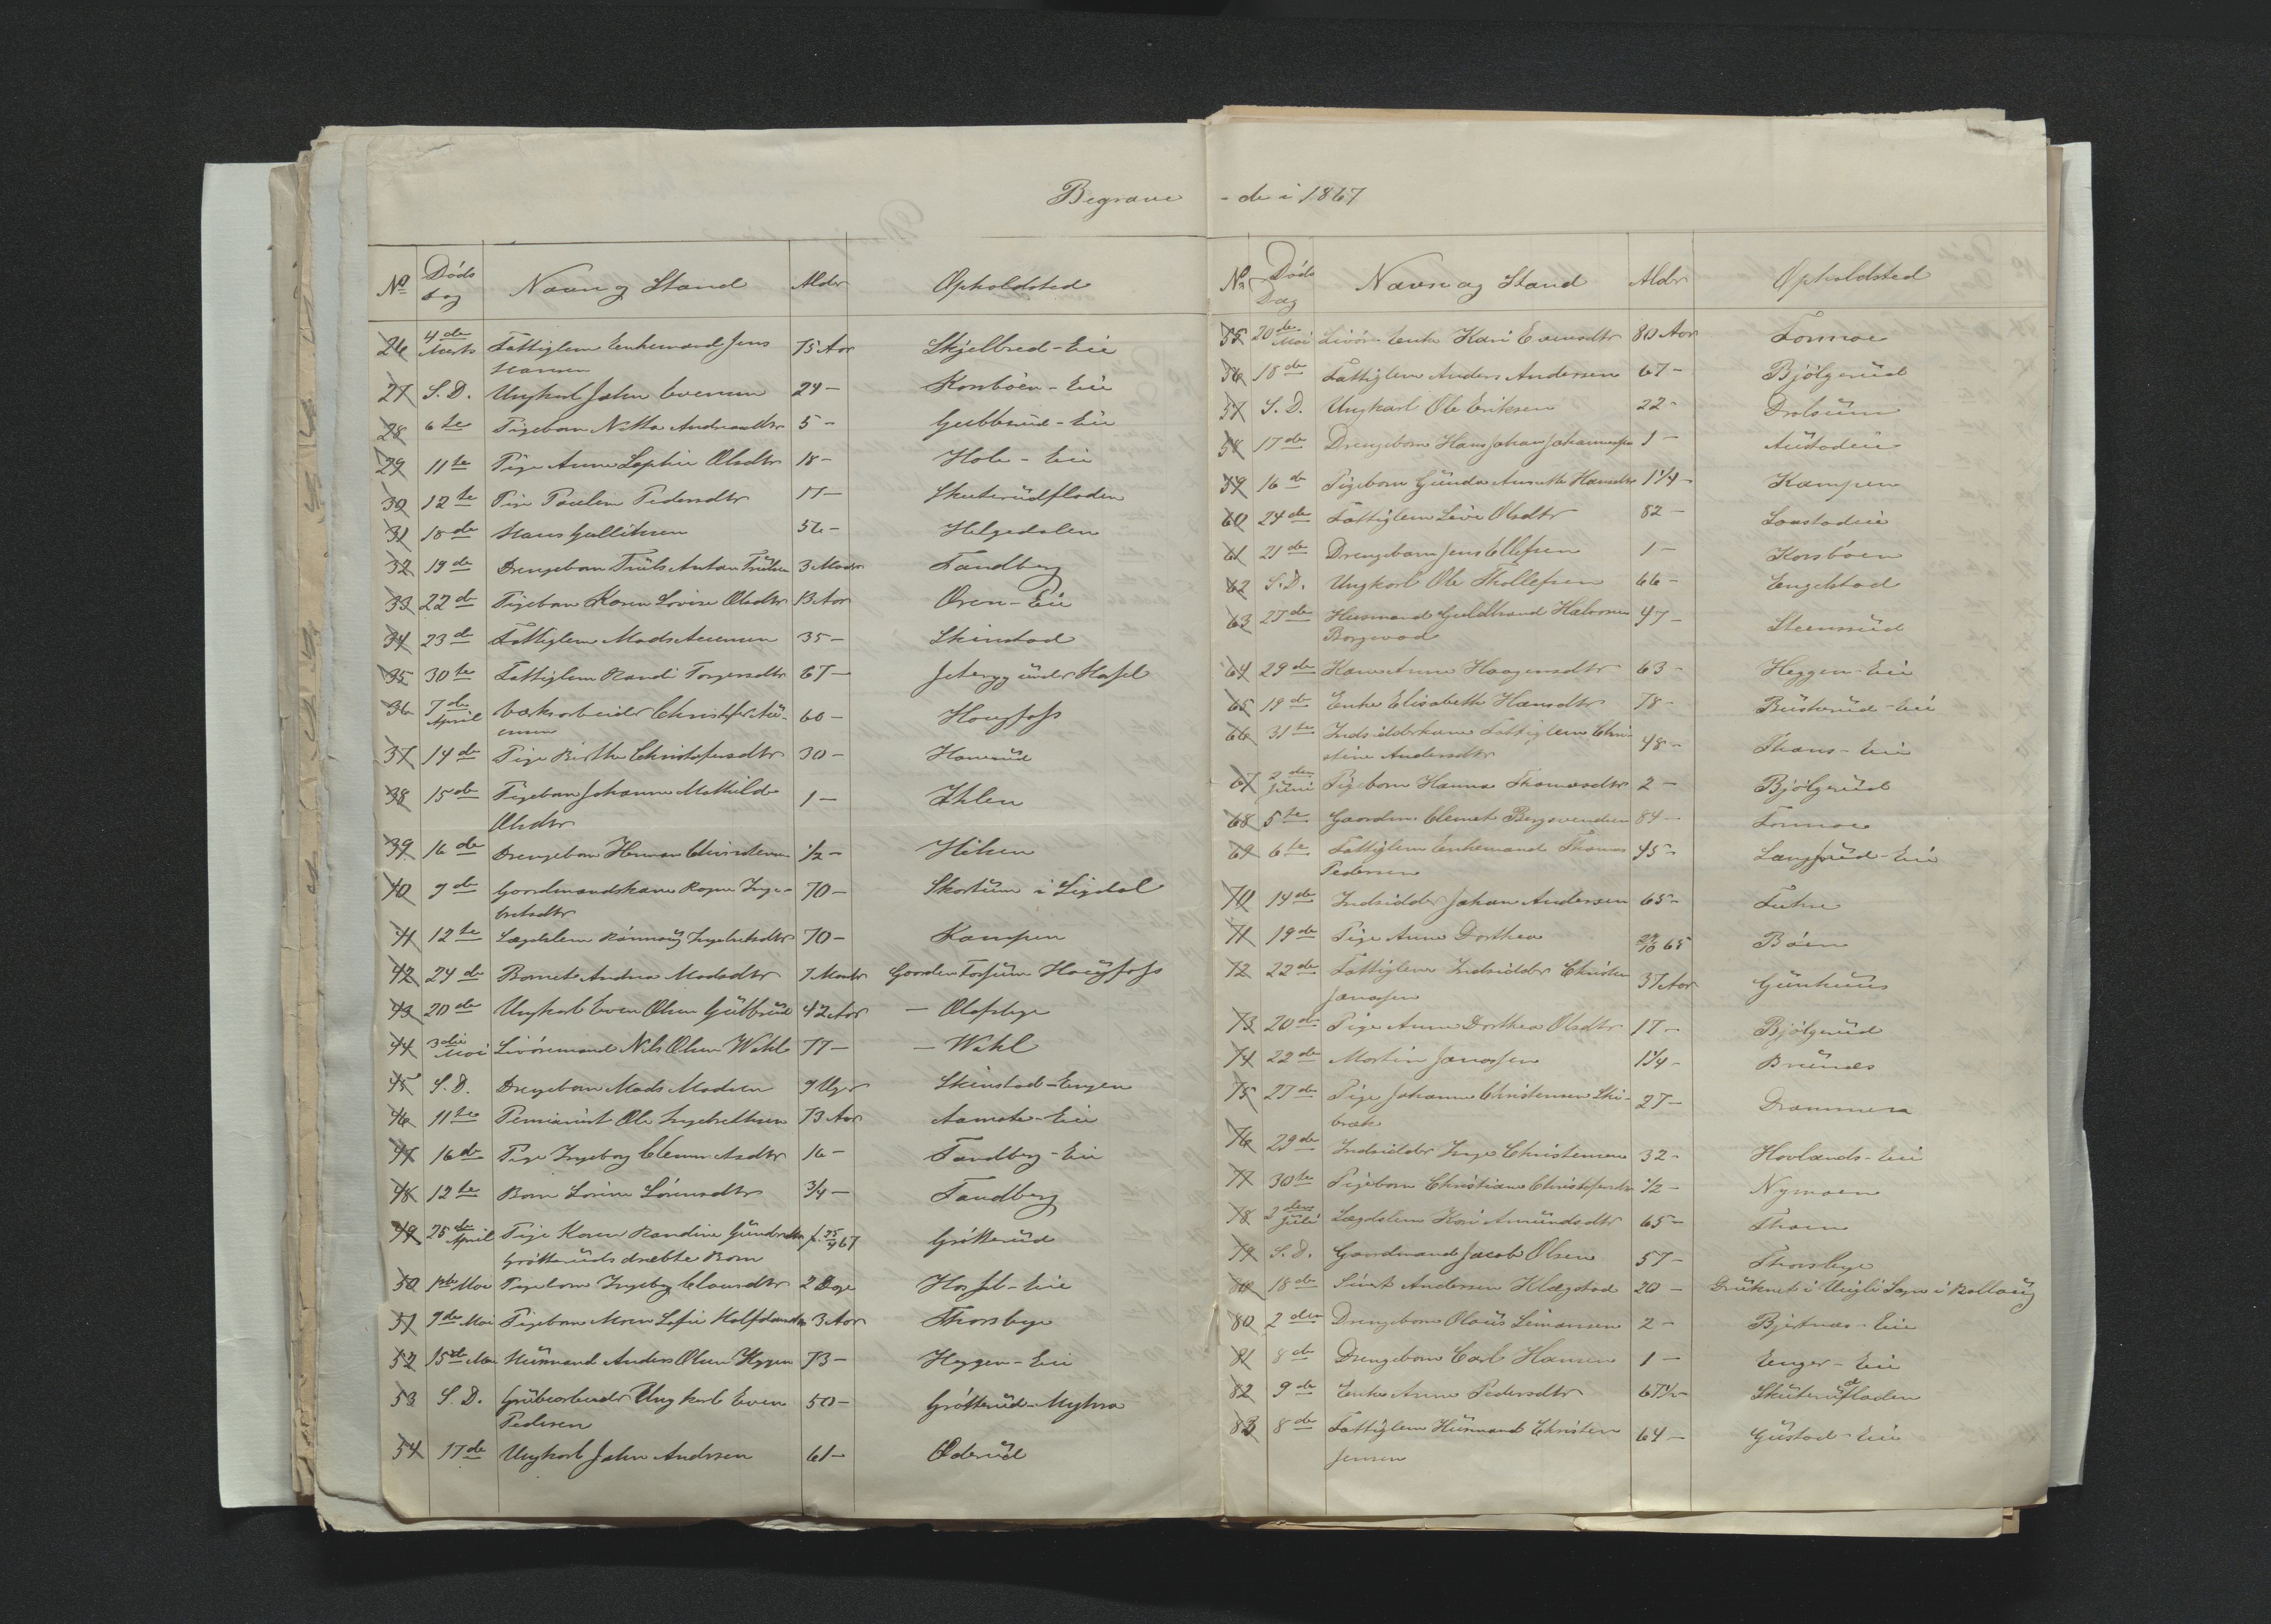 Begrave - de i 1867
No Döds dag Navn og Stand Alder Opholdsted
26 4de Marts Fattiglem Enkemand Jens 75 Aar Skjelbred-Eie
Hansen
27 S. D. Ungkarl John Evensen 24 - Korsböen-Eie
28 6te Pigebarn Netta Andreasdtr 5 - Gubberud-Eie
29 11te Pige Anne Sophie Olsdtr 18 - Hole-Eie
30 12te Pige Pauline Pedersdtr 17 - Skuterüdfladen
31 18de Hans Gulliksen 52 - Helgedalen
32 19de Drengebarn Truls Anton Trulsen 3 Maander Tandberg
33 22de Pigebarn Karen Lovise Olsdtr 13 Aar Ören-Eie
34 23de Fattiglem Mads Amundsen 35 - Skinstad
35 30te Fattiglem Randi Torgersdtr 67 - under Hassel
36 7de April Værksarbeider Christofer An- 60 - Hougfoss
ensen
37 14de Pige Birthe Christofersdtr 30 - Hanerüd
38 15de Pigebarn Johanne Mathilde 1 - Ihlen
Olsdtr
39 16de Drengebarn Herman Christensen 1/2 - Hilsen
40 9de Gaardmandskone Ragne Inge- 70 - Skartum i Sigdal
bretsdtr
41 12te Lægdslem Rönnaug Ingebretsdtr 70 - Kampen
42 24de Barnet Andrea Madsdtr 7 Maander Gaarden Fossum Hougfoss
43 20de Ungkarl Even Olsen Gubberüd 42 Aar - Olafsbye
44 3die Mai Livöremand Nils Olsen Wahl 77 - - Wahl
45 S. D. Drengebarn Mads Madsen 9 Uger Skinstad-Engen
46 11te Pensionist Ole Ingebrethsen 73 Aar Aamots-Eie
47 16de Pige Ingeborg Clemmetsdtr 16 - Tandberg-Eie
48 12te Barn Lovise Sörensdtr 3/4 - Tandberg
49 25de April Pige Karen Randine Gundersdtr f. 25/4 67 Gröterüd
Gröterüds dræbte Barn
50 1ste Mai Pigebarn Ingeborg Clausdtr 2 Dage Hassel-Eie
51 9de Mai Pigebarn Maren Sofie Halfdansdtr 3 Aar Thorsbye
52 15de Mai Husmand Anders Olsen Heggen 73 - Heggen-Eie
53 S. D. Grubearbeider Ungkarl Even 50 - Gröterüd-Myhra
Pedersen
54 17de Ungkarl John Andersen 61 - Öderüd
No Döds Dag Navn og Stand Alder Opholdsted
55 20de Mai Livöre Enke Kari Evensdtr 80 Aar Formoe
56 18de Fattiglem Anders Andersen 67 - Bjölgerüd
57 S. D. Ungkarl Ole Eriksen 22 - Drolsüm
58 17de Drengebarn Hans Johan Johannesen 1 - Austadeie
59 16de Pigebarn Günda Annette Hansdtr 1 1/4 - Kampen
60 24de Fattiglem Live Olsdtr 82 - Laastadeie
61 21de Drengebarn Jens Ellefsen 1 - Korsböen
62 S. D. Ungkarl Ole Thollefsen 66 - Engelstad
63 27de Husmand Guldbrand Halvorsen 47 - Steensrüd
Borgevad
64 29de Kone Anne Haagensdtr 63 - Heggen-Eie
65 19de Enke Elisabeth Hansdtr 78 - Büskerüd-Eie
66 31te Indsidderkone Fattiglem Chri- 48 - Thans-Eie
stine Andersdtr
67 2den Juni Pigebarn Hanna Thomasdtr 2 - Bjölgerüd
68 5te Gaardm Clemet Bergsvendsen 84 - Formoe
69 6te Fattiglem Enkemand Thomas 45 - Langrüd-Eie
Pedersen
70 14de Indsidder Johan Andersen 65 - Furu
71 19de Pige Anne Dorthea 27/10 65 Böen
72 22de Fattiglem Indsidder Christen 37 Aar Günhuus
Janassen
73 20de Pige Anne Dorthea Olsdtr 17 - Bjölgerüd
74 22de Martin Janassen 1 1/4 - Brunes
75 27de Pige Johanne Christensen Ski- 27 - Drammen
bræk
76 29de Indsidder Inge Christensen 32 - Hovlands-Eie
77 30te Pigebarn Christiane Christofersdtr 1/2 - Nymoen
78 2den Juli Lægdslem Kari Amundsdtr 65 - Thoen
79 S. D. Gaardmand Jacob Olsen 57 - Thorsbye
80 18de Sivert Andersen Hægstad 20 - Druknet i Vegli Sogn i Rollaug
80 2den Drengebarn Olaüs Simonsen 2 - Bjertnæs-Eie
81 8de Drengebarn Carl Hansen 1 - Enger-Eie
82 9de Enke Anne Pedersdtr 67 1/2 - Skuterüdfladen
83 8de Fattiglem Husmand Christen 64 - Güstad-Eie
Jensen